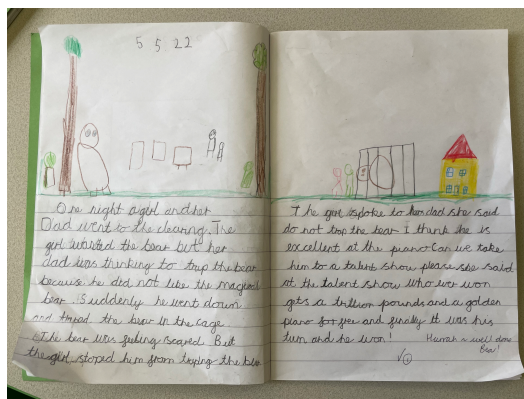 5 5 22
One night a girl and her
Dad went to the clearing. The
girl wanted the bear but her
dad was thinking to trap the bear
because he did not like the magical
bear. Suddenly he went down
and traped the bear in the cage.
The bear was feeling scared. But
the girl stoped him from traping the bear
The girl spoke to her dad she said
do not trap the bear I think she is
excellent at the piano Can we take
him to a talent show please she said
at the talent show who ever won
gets a trillion pounds and a golden
piano for free and finally it was his
turn and he won!
Hurrah ~ well done
Bear!